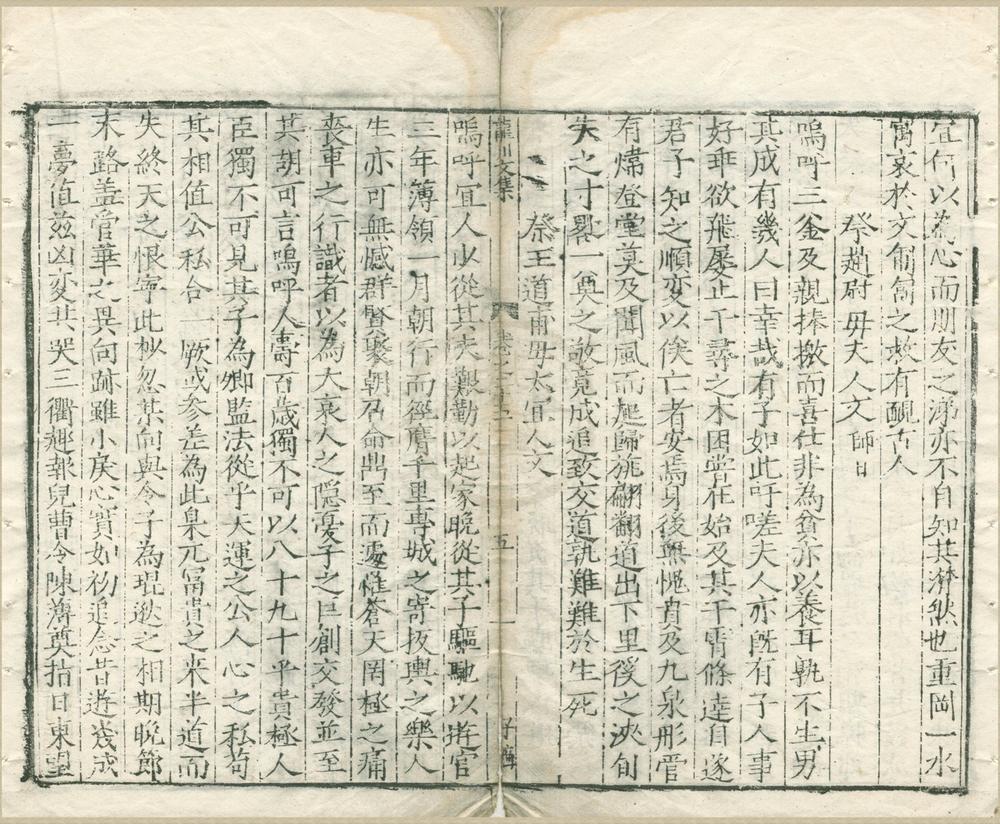 宜何以為心而朋友之涕亦不自知其潸然也重岡一水
寓哀於文匍匐之救有靦古人
祭趙尉母夫人文 師日
嗚呼三釜及親捧檄而喜仕非為貧亦以養耳孰不生男
其成有幾人曰幸哉有子如此吁嗟夫人亦既有子人事
好乖欲飛屢止千尋之木困嘗在始及其干霄條達自遂
君子知之順變以俟亡者安焉身後無愧直及九泉彤管
有煒登堂莫及聞風而起歸旐翩翩道出下里後之浹旬
失之寸晷一奠之敬竟成追致交道孰難難於生死
祭王道甫母太宜人文
龍川文集
卷之二十五
五
嗚呼宜人少從其夫艱勤以起家晚從其子驅馳以遊官
三年簿領一月朝行而徑膺千里專城之寄扳輿之樂人
生亦可無憾群賢聚朝召命鼎至而遽罹蒼天罔極之痛
喪車之行識者以為大哀人之隱憂子之巨創交發並至
其胡可言嗚呼人壽百歲獨不可以八十九十平貴極人
臣獨不可見其子為卿監法從乎天運之公人心之私苟
其相值公私合一厥或參差為此臬兀冨貴之来半道而
失終天之恨寧此杪忽某向與令子為琨逖之相期晚節
末路盖管華之異向跡雖小戾心實如初追念昔遊幾成
一夢值兹凶変共哭三衢趣報兒曹令陳薄奠指日東望